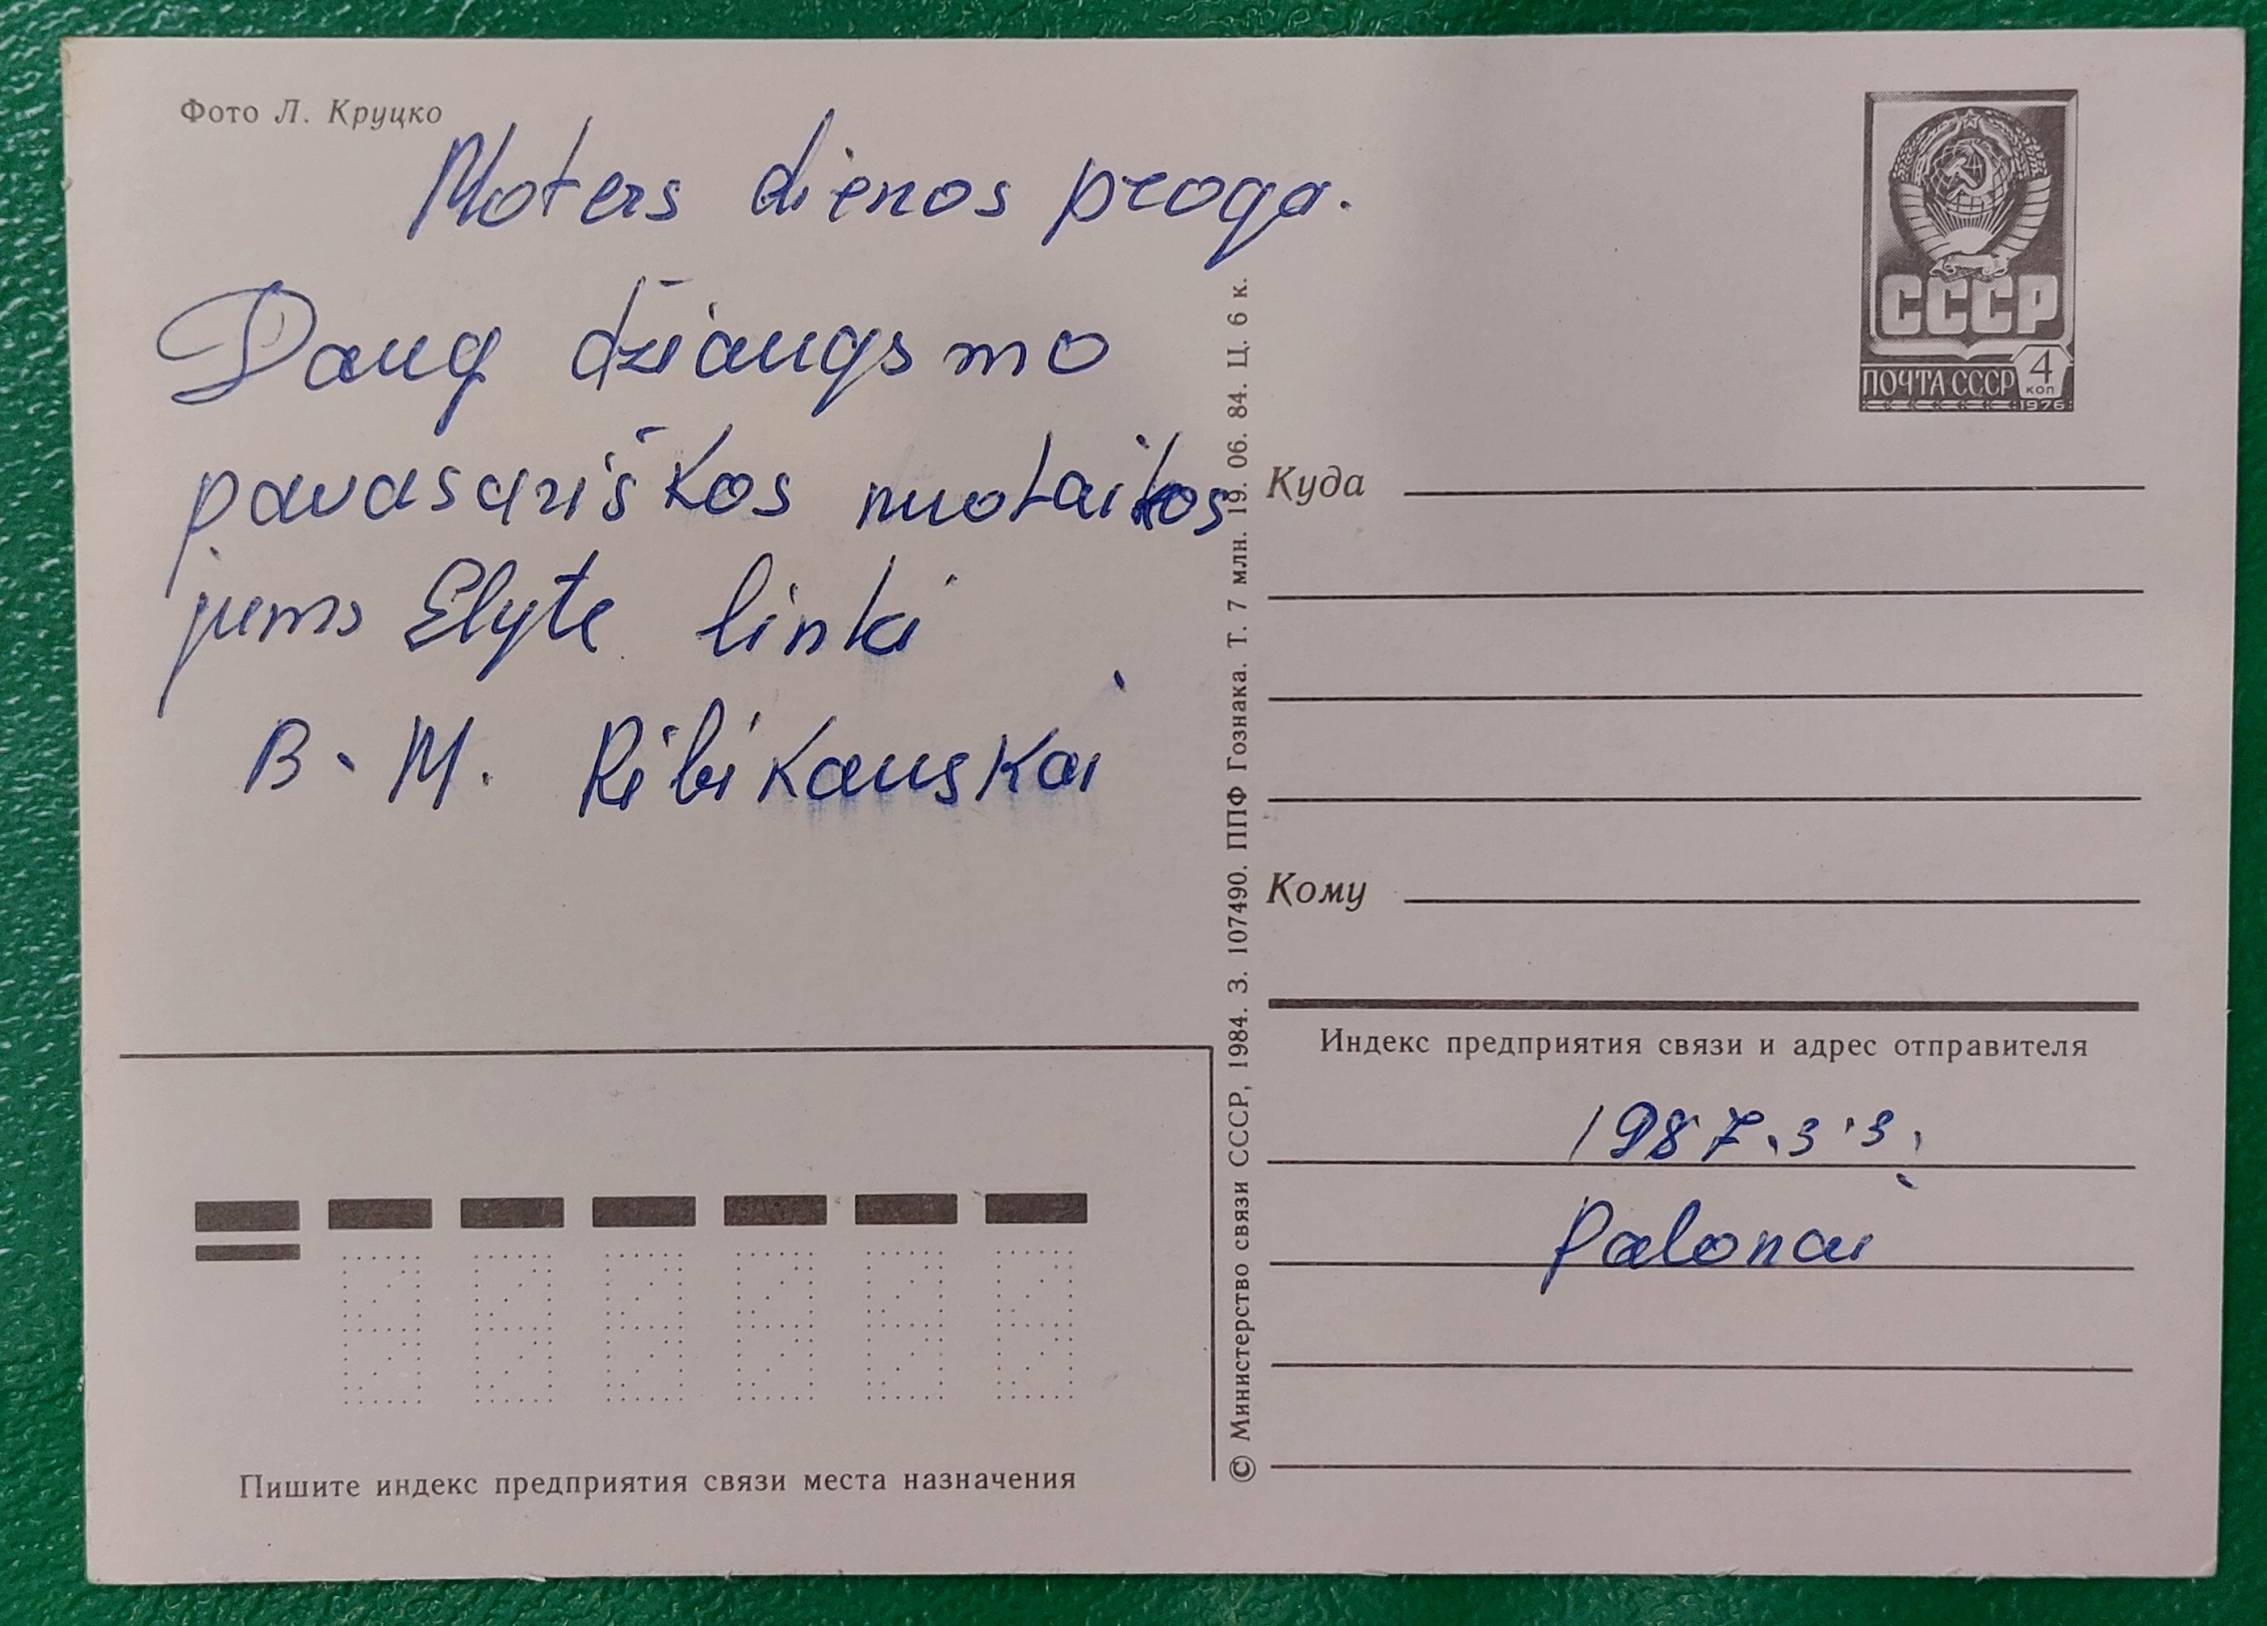 Фото Л. Круцко
Moters dienos proga.
Daug džiaugsmo
pavasariškos nuotaikos
jums Elyte linki
B. M. Ribikauskai
СССР
ПОЧТА СССР 4 коп
1976
Куда
Кому
Индекс предприятия связи и адрес отправителя
1987.3.3.
Palonai
© Министерство связи СССР, 1984. З. 107490. ППФ Гознака. Т. 7 млн. 19. 06. 84. Ц. 6 к.
Пишите индекс предприятия связи места назначения